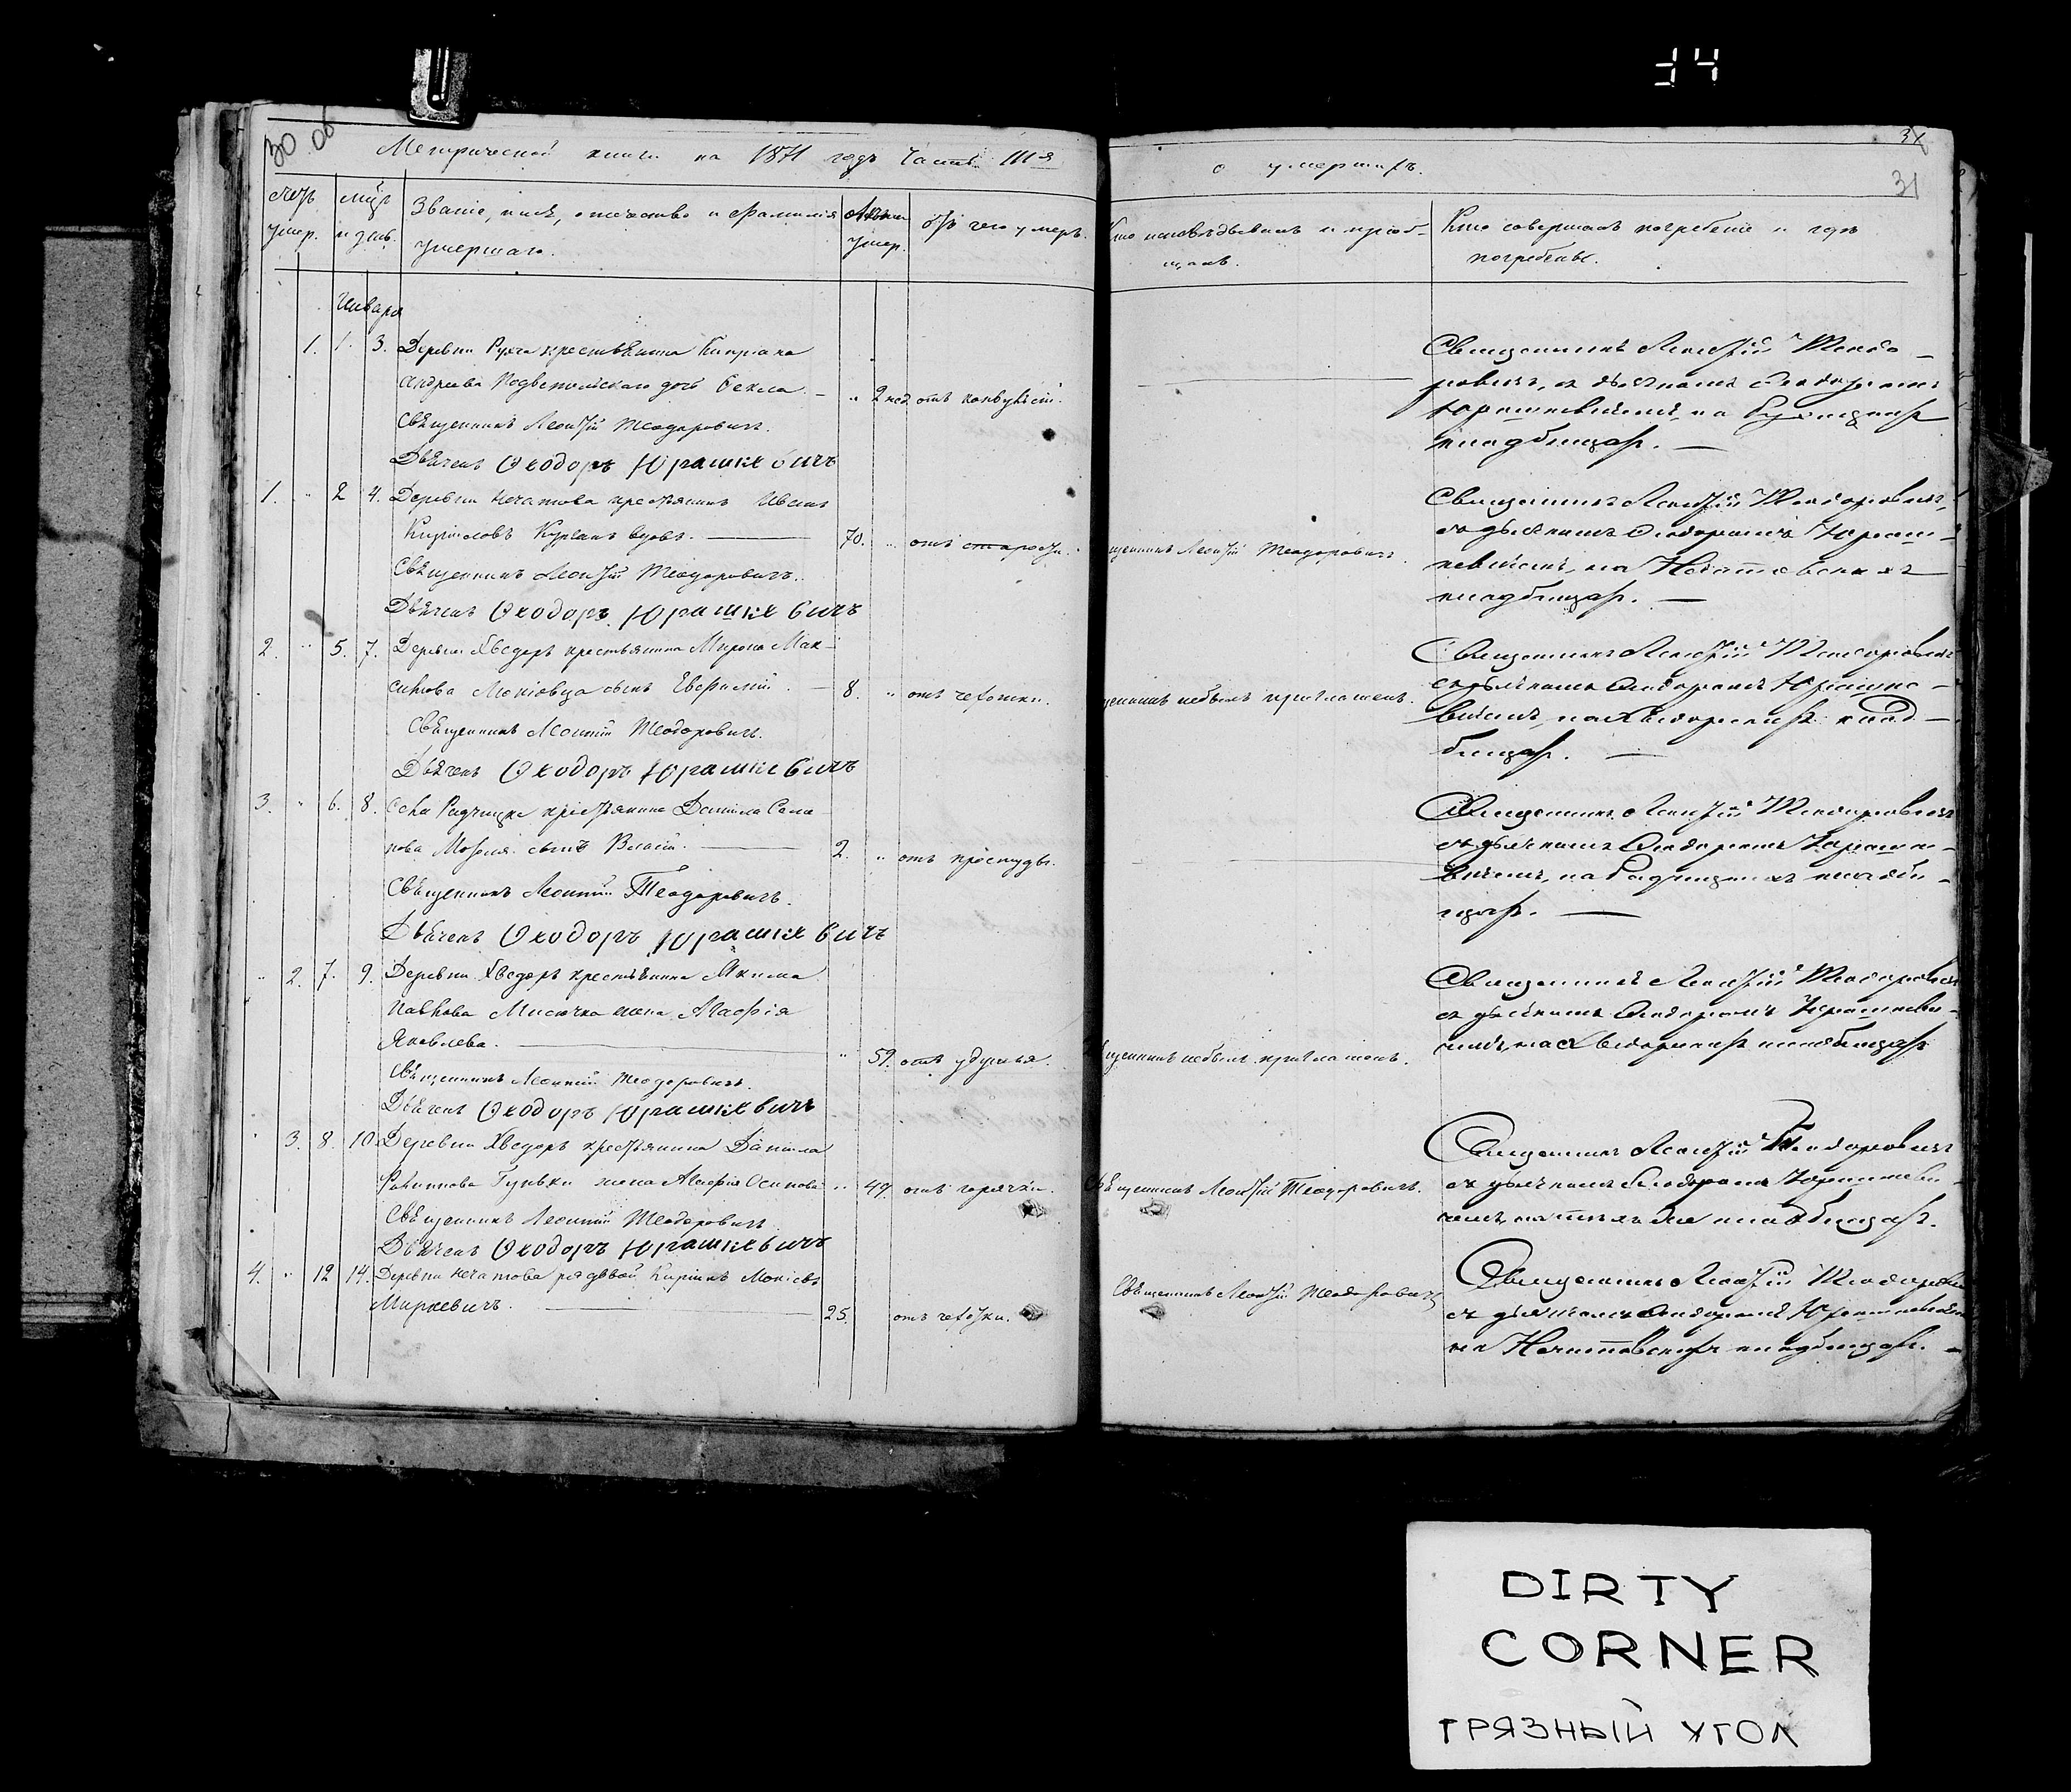 34
30 об
Метрической книги на 1871 годъ Часть III-я
о умершихъ.
31
умер.
и день.
Званіе, имя, отечество и фамилія
умершаго.
умер.
отъ чего умеръ.
Кто исповѣдывалъ и пріоб-
щалъ.
Кто совершалъ погребеніе и гдѣ
погребены.
Января
1. 1. 3. Деревни Рухча крестьянина Кипріана
Андреева дочь Фекла. " 2 нед. отъ
Священникъ Леонтій Теодоровичъ.
Дьячекъ Ѳеодоръ Юрашкевичъ
Священникъ Леонтій Теодо-
ровичъ, съ дьячкомъ Ѳеодоромъ
Юрашкевичемъ, на
кладбищѣ.
1. " 2 4. Деревни Нечатова крестьянинъ Иванъ
Кириловъ вдовъ. 70. " отъ старости.
Священникъ Леонтій Теодоровичъ.
Дьячекъ Ѳеодоръ Юрашкевичъ
щенникъ Леонтій Теодоровичъ.
Священникъ Леонтій Теодоровичъ,
съ дьячкомъ Ѳеодоромъ Юраш-
кевичемъ, на Нечатовскомъ
кладбищѣ.
2. " 5. 7. Деревни Хведоръ крестьянина Мирона Мак-
симова сынъ Евфимій. 8. " отъ чахотки.
Священникъ Леонтій Теодоровичъ.
Дьячекъ Ѳеодоръ Юрашкевичъ
щенникъ небылъ приглашенъ.
Священникъ Леонтій Теодоровичъ
съ дьячкомъ Ѳеодоромъ Юрашке-
вичемъ, на Хведорскомъ клад-
бищѣ.
3. " 6. 8. Села Радчицка крестьянина Даніила
сынъ Власій. 2. " отъ простуды.
Священникъ Леонтій Теодоровичъ.
Дьячекъ Ѳеодоръ Юрашкевичъ
Священникъ Леонтій Теодоровичъ
съ дьячкомъ Ѳеодоромъ Юрашке-
вичемъ, на Радчицкомъ кладби-
щѣ.
" 2. 7. 9. Деревни Хведоръ крестьянина Якима
Павлова Мисючка жена Агафія
Яковлева. " 59. отъ удушья.
Священникъ Леонтій Теодоровичъ.
Дьячекъ Ѳеодоръ Юрашкевичъ
щенникъ небылъ приглашенъ.
Священникъ Леонтій Теодоровичъ
съ дьячкомъ Ѳеодоромъ Юрашкеви-
чемъ, на Хведорскомъ кладбищѣ
" 3. 8. 10. Деревни Хведоръ крестьянина Даніила
жена Агафія Осипова " 49. отъ горячки.
Священникъ Леонтій Теодоровичъ
Дьячекъ Ѳеодоръ Юрашкевичъ
Священникъ Леонтій Теодоровичъ.
Священникъ Леонтій Теодоровичъ
съ дьячкомъ Ѳеодоромъ Юрашкеви-
чемъ, на томъ же кладбищѣ.
4. " 12 14. Деревни Нечатова рядовой
Маркевичъ. 25. отъ чахотки.
Священникъ Леонтій Теодоровичъ
Священникъ Леонтій Теодорович
съ дьячкомъ Ѳеодоромъ Юрашкевичем
на Нечатовскомъ кладбищѣ.
DIRTY
CORNER
ГРЯЗНЫЙ УГОЛ